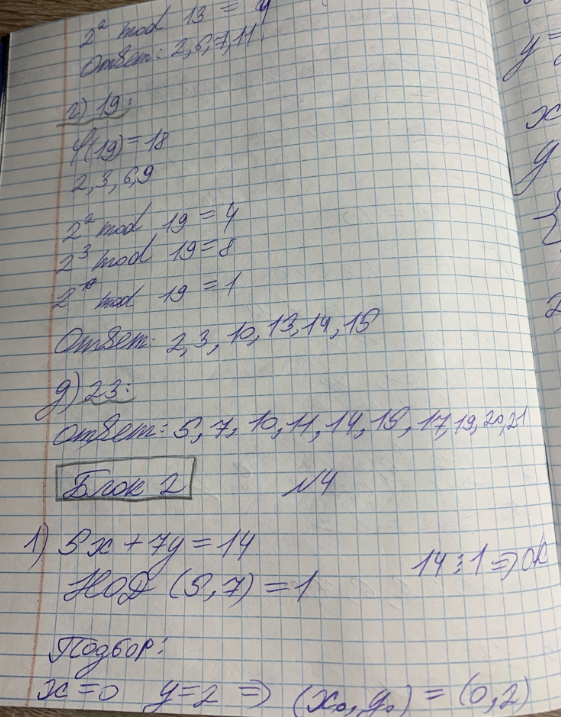 2² mod 13 = 4
Ответ: 2,6,7,11
г) 19:
φ(19) = 18
2,3,6,9
2² mod 19 = 4
2³ mod 19 = 8
mod 19 = 1
Ответ: 2,3,10,13,14,15
д) 23:
Ответ: 5,7,10,11,14,15,17,19,20,21
Блок 2 №4
1) 5x + 7y = 14
НОД (5,7) = 1 14⋮1 ⇒ OK
Подбор:
x = 0 y = 2 ⇒ (x₀, y₀) = (0,2)
y =
x
y